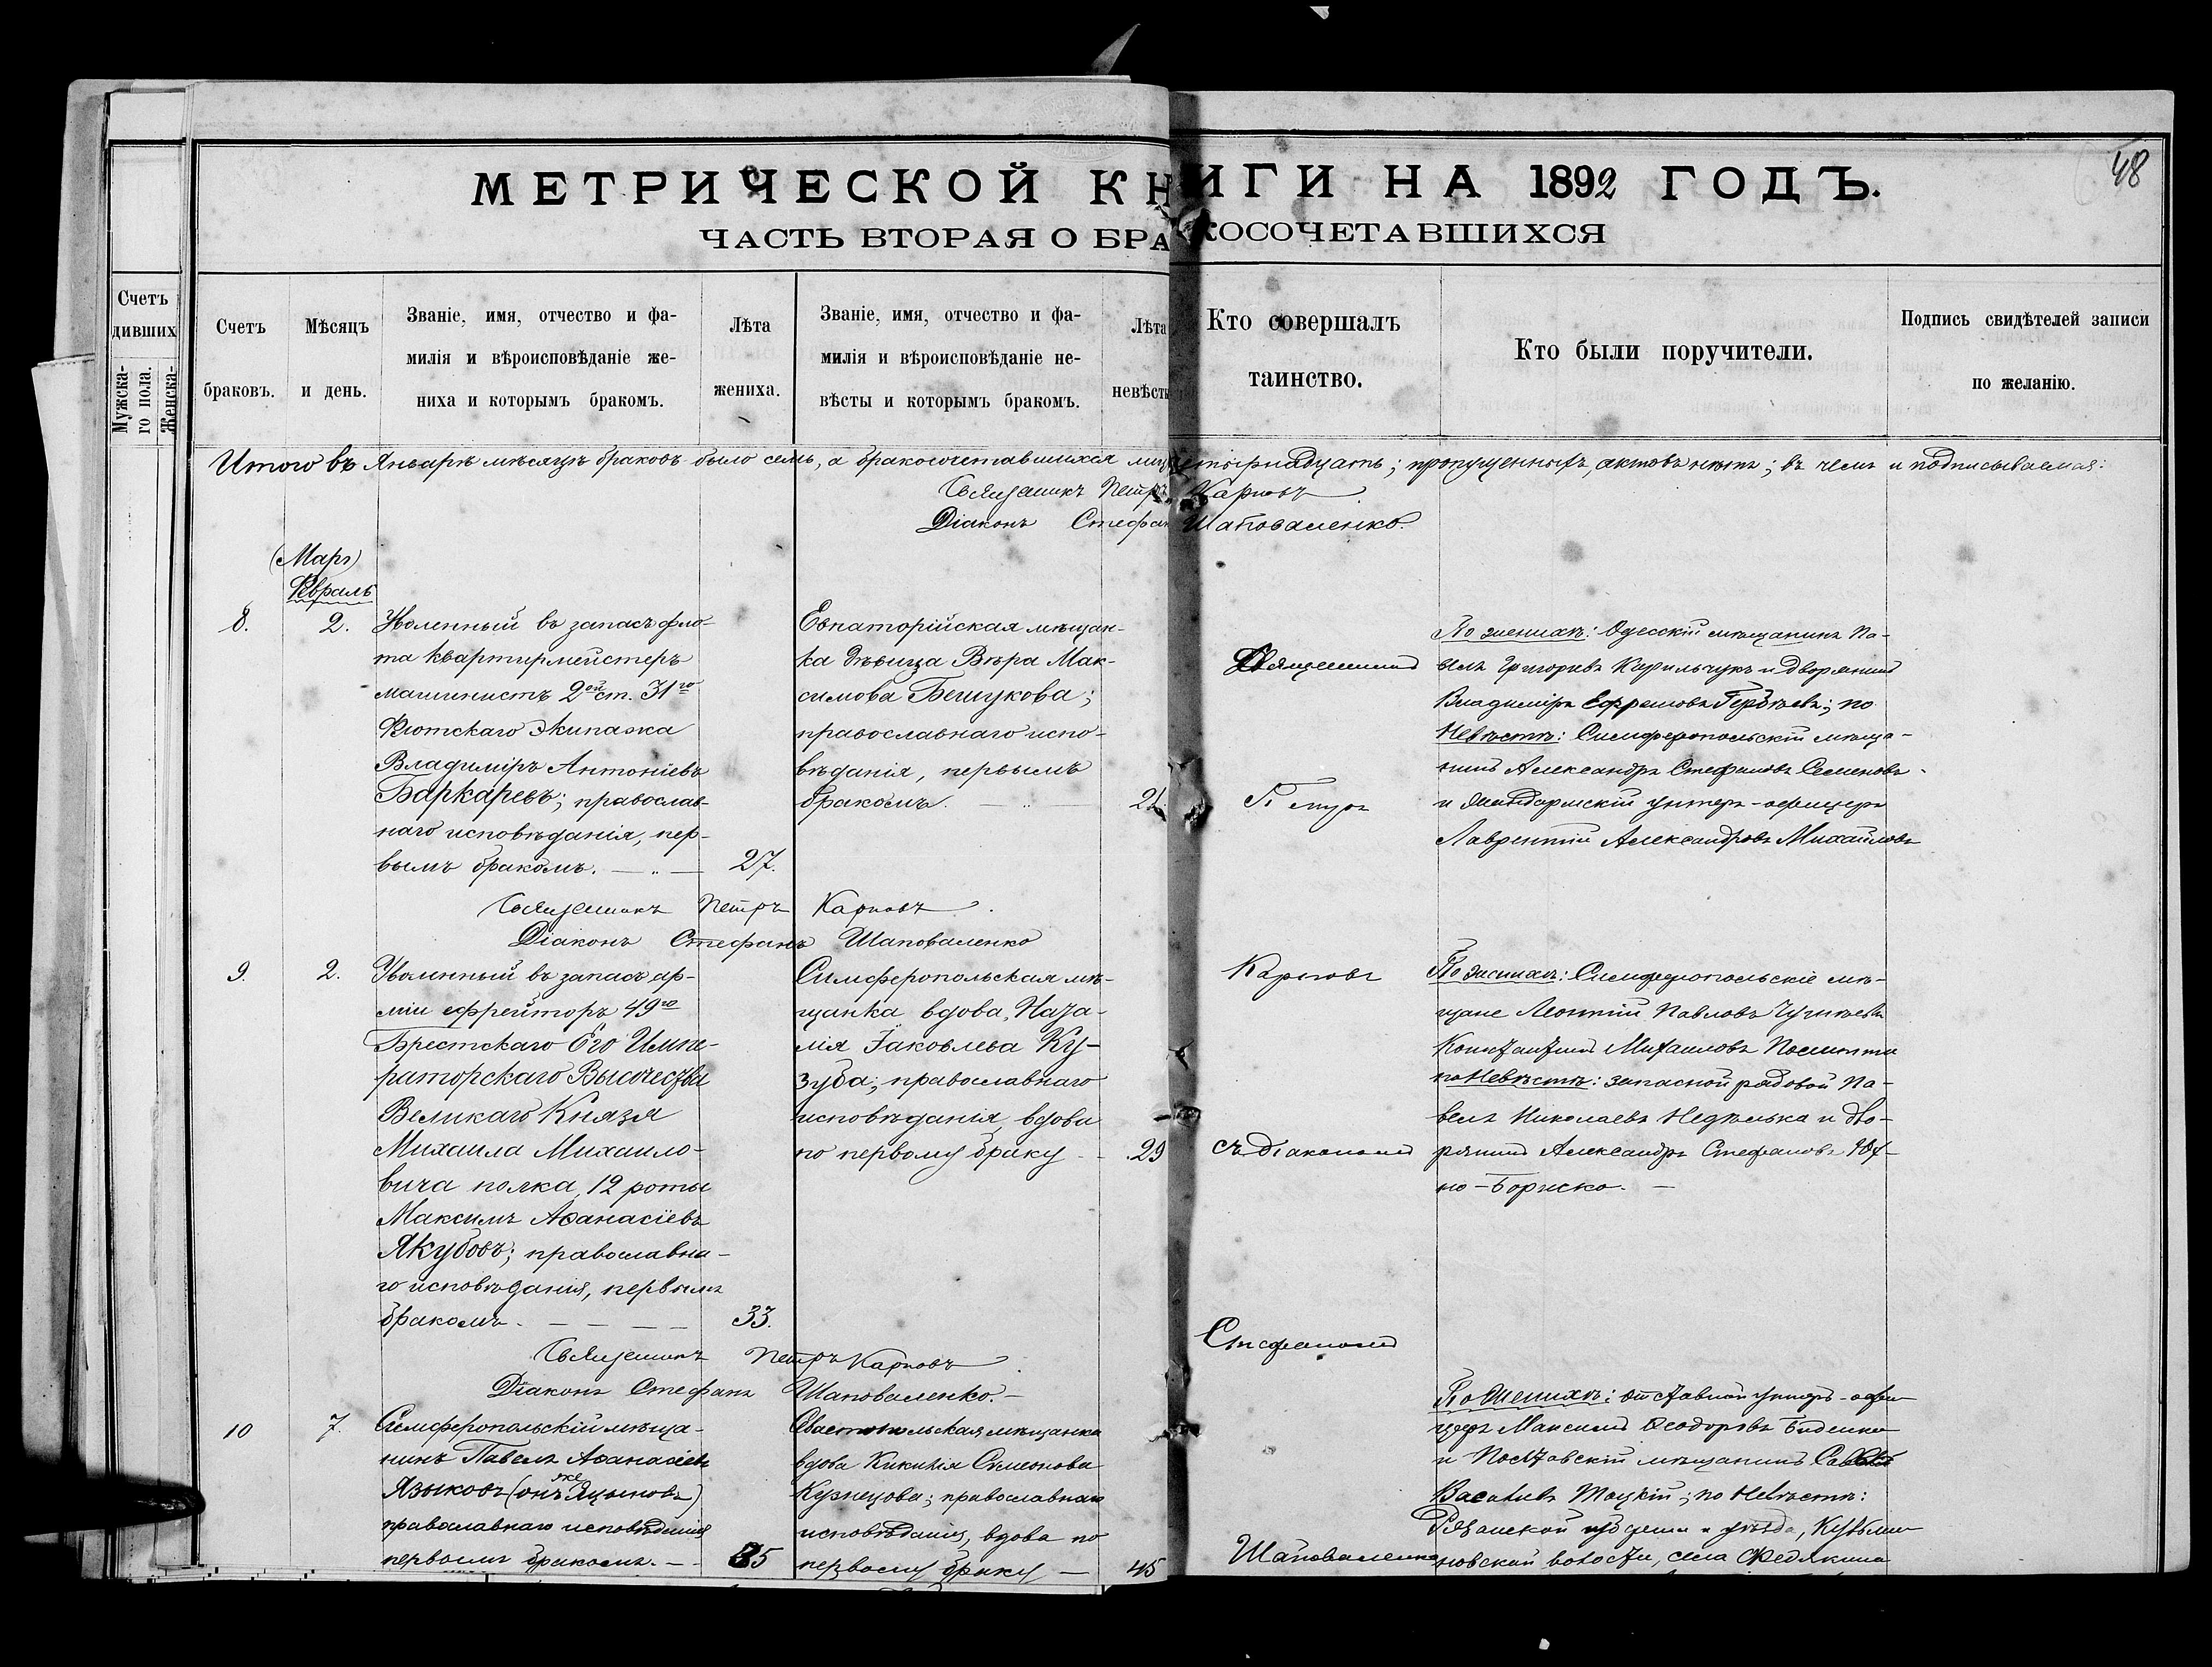 МЕТРИЧЕСКОЙ КНИГИ НА 1892 ГОДЪ.
48
ЧАСТЬ ВТОРАЯ О БРАКОСОЧЕТАВШИХСЯ
Счетъ
дивших
Мужска-
го пола.
Женска-
Счетъ
браковъ.
Мѣсяцъ
и день.
Званіе, имя, отчество и фа-
милія и вѣроисповѣданіе же-
ниха и которымъ бракомъ.
Лѣта
жениха.
Званіе, имя, отчество и фа-
милія и вѣроисповѣданіе не-
вѣсты и которымъ бракомъ.
Лѣта
невѣсты
Кто совершалъ
таинство.
Кто были поручители.
Подпись свидѣтелей записи
по желанію.
Итого въ Январѣ мѣсяцѣ браковъ было семь, а бракосочетавшихся лицъ четырнадцать; пропущенныхъ актовъ нѣтъ; въ чемъ и подписываемся:
Священникъ Петръ Карповъ
Діаконъ Стефанъ Шаповаленко.
(Мар)
Февраль
8.
2.
Уволенный въ запасъ фло-
та квартирмейстеръ
машинистъ 2ой ст. 31го
Флотскаго Экипажа
Владиміръ Антоніевъ
Баркаревъ; православ-
наго исповѣданія, пер-
вымъ бракомъ.
27.
Евпаторійская мѣщан-
ка дѣвица Вѣра Мак-
симова Бешукова;
православнаго испо-
вѣданія, первымъ
бракомъ.
21.
Священникъ
Петръ
По женихѣ: Одесскій мѣщанинъ Па-
велъ Григорьевъ Кирильчукъ и дворянинъ
Владиміръ Ефремовъ; по
Невѣстѣ: Симферопольскій мѣща-
нинъ Александръ Стефановъ Семеновъ
и жандармскій унтеръ-офицеръ
Лаврентій Александровъ Михайловъ
Священникъ Петръ Карповъ.
Діаконъ Стефанъ Шаповаленко
9.
2.
Уволенный въ запасъ ар-
міи ефрейторъ 49го
Брестскаго Его Импе-
раторскаго Высочества
Великаго Князя
Михаила Михаило-
вича полка, 12 роты
Максимъ Аѳанасіевъ
Якубовъ; православна-
го исповѣданія, первымъ
бракомъ.
33.
Симферопольская мѣ-
щанка вдова, Ната-
лія Іаковлева Ку-
зуба; православнаго
исповѣданія, вдова
по первому браку
29
Карповъ
съ діакономъ
Стефаномъ
По женихѣ: Симферопольскіе мѣ-
щане Леонтій Павловъ
Константинъ Михаиловъ
по Невѣстѣ: запасной рядовой Па-
велъ Николаевъ Недѣлька и дво-
рянинъ Александръ Стефановъ
но-Бориско.
Священникъ Петръ Карповъ.
Діаконъ Стефанъ Шаповаленко.
10
7.
Симферопольскій мѣща-
нинъ Павелъ Аѳанасіевъ
Языковъ (онъ же Яцыновъ)
православнаго исповѣданія
первымъ бракомъ.
35
Севастопольская мѣщанка
вдова Кикилія Симеонова
Кузнецова; православнаго
исповѣданія, вдова по
первому браку
45
Шаповаленко
По Женихѣ: отставной унтеръ-офи-
церъ Максимъ Ѳеодоровъ Биденко
и Полтавскій мѣщанинъ
Васильевъ Тоцкій; по Невѣстѣ:
Рязанской губерніи и уѣзда, Кузьми-
новской волости, села Федякина